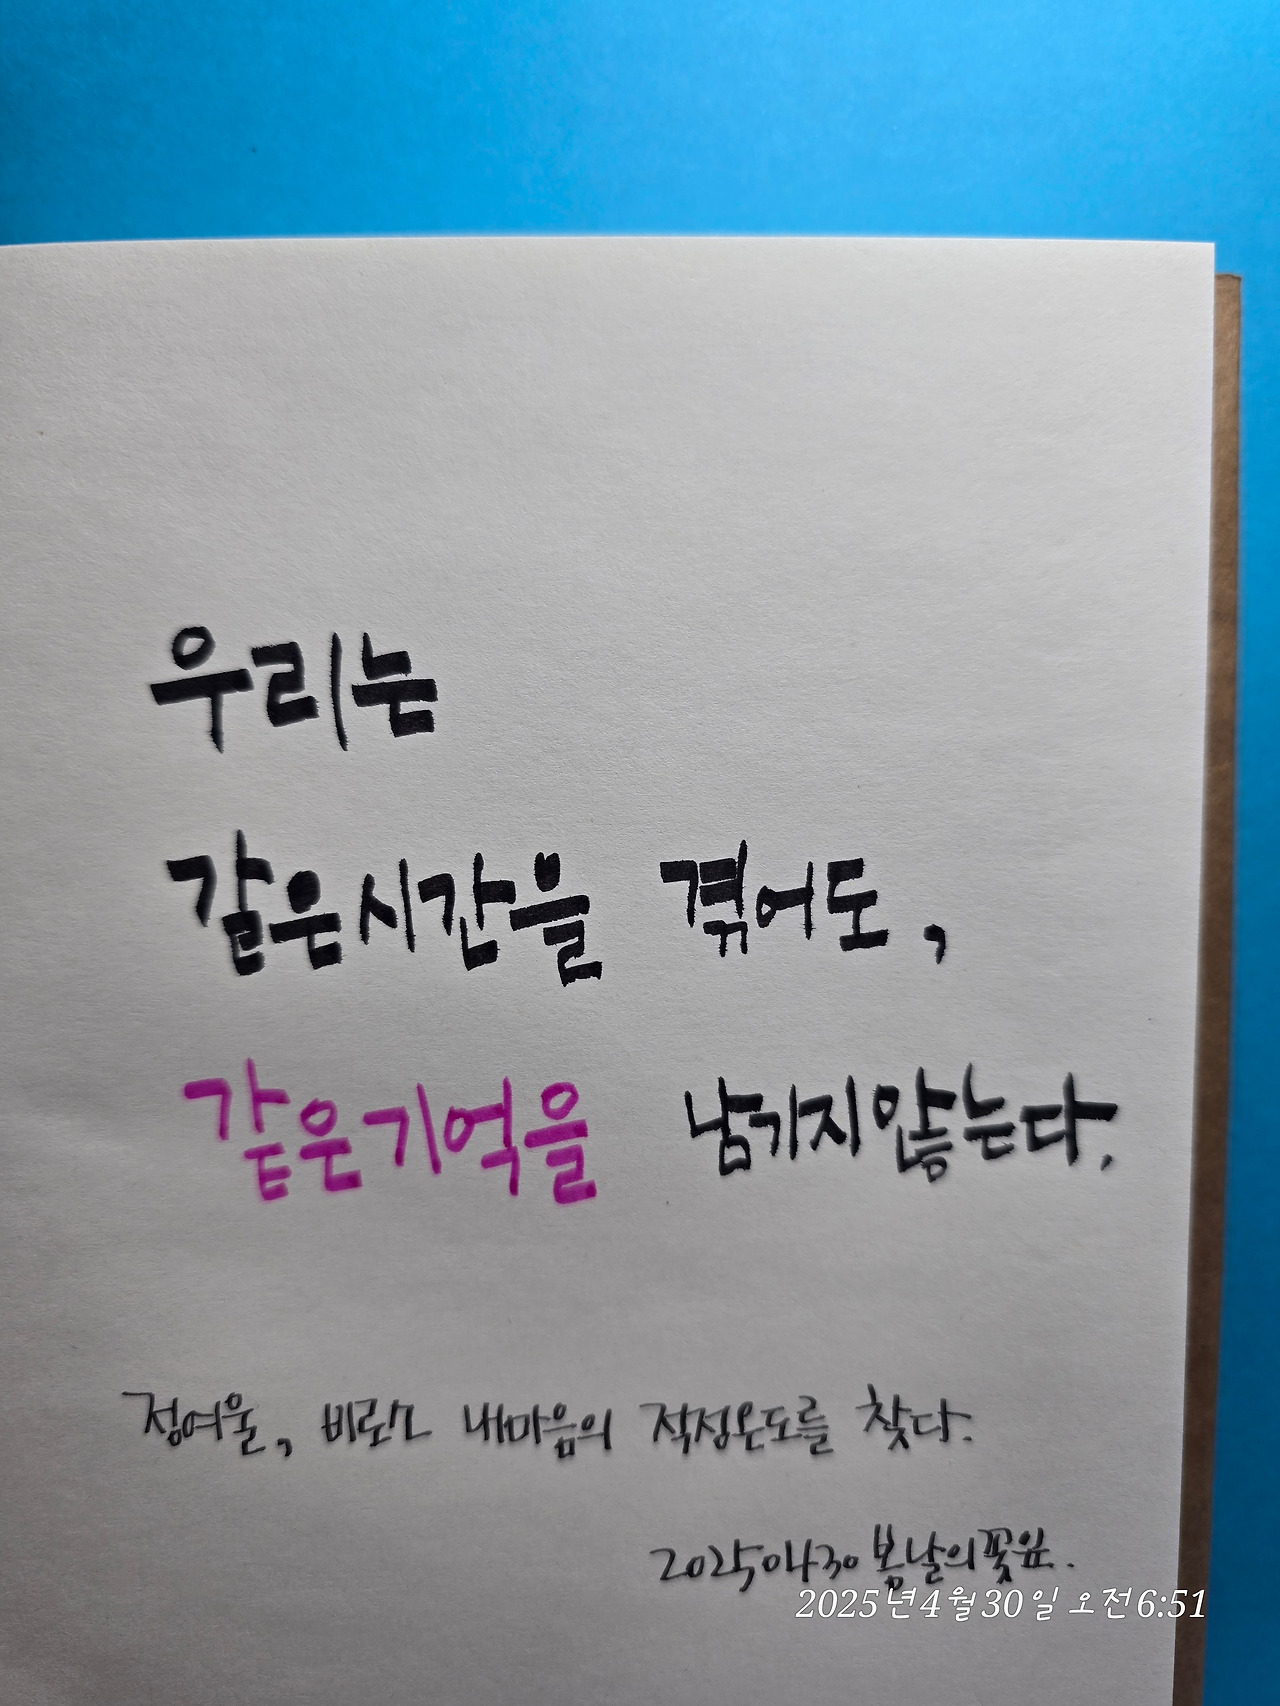 우리는
같은시간을 겪어도,
같은기억을 남기지않는다.
정여울, 비로소 내마음의 적정온도를 찾다.
20250430 봄날의꽃잎.
2025년4월30일 오전6:51